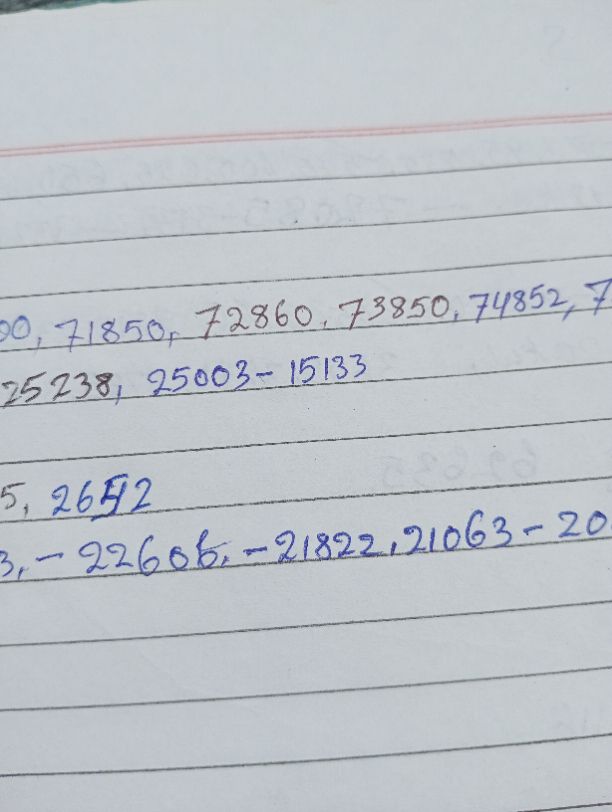 00, 71850, 72860, 73850, 74852, 7
25238, 25003 - 15133
5, 2652
3, - 22606, - 21822, 21063 - 20